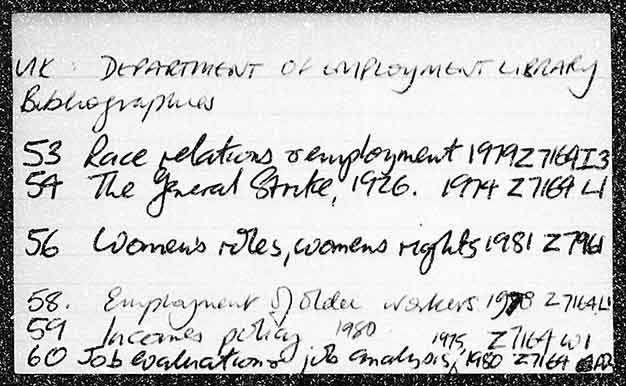 UK. DEPARTMENT OF EMPLOYMENT LIBRARY
Bibliographies
53 Race relations & employment 1979 Z7164 I3
54 The General Strike, 1926. 1974 Z7164 L1
56 Women's roles, womens rights 1981 Z7961
58. Employment of older workers 1978 Z7164L1
59 Incomes policy 1980 Z7164 W1
60 Job evaluation & job analysis, 1975, 1980 Z7164